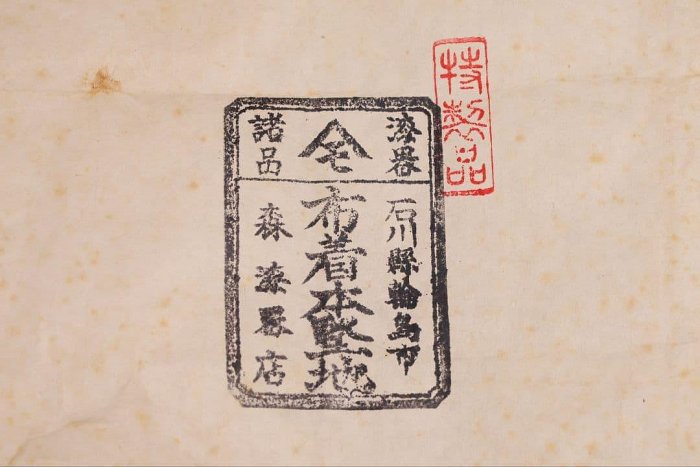 特製品
漆器
モ
諸品
石川縣輪島市
布着本堅地
森漆器店